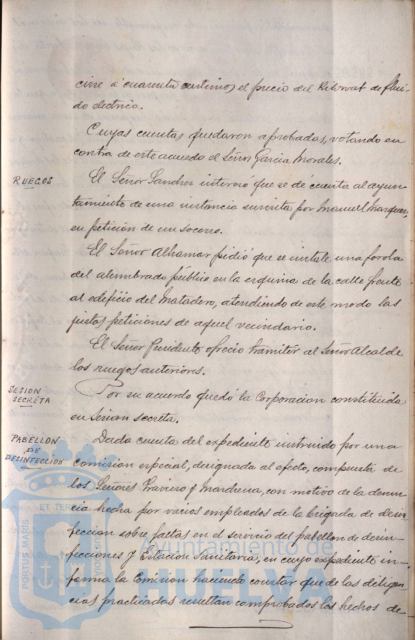 cine á cuarenta centimos el precio del Kilovat de flui-
do electrico.
Cuyas cuentas quedaron aprobadas, votando en
contra de este acuerdo el Señor García Morales.
RUEGOS
El Señor Sanchez interesó que se dé cuenta al ayun-
tamiento de una instancia suscrita por Manuel Marquez,
en petición de un socorro.
El Señor Alhamar pidió que se instale una farola
del alumbrado público en la esquina de la calle frente
al edificio del Matadero, atendiendo de este modo las
justas peticiones de aquel vecindario.
El Señor Presidente ofreció tramitar al Señor Alcalde
los ruegos anteriores.
SESION
SECRETA
Por su acuerdo quedó la Corporacion constituida
en Sesion secreta.
PABELLON
DE
DESINFECCION
Dada cuenta del expediente instruido por una
Comision especial, designada al efecto, compuesta de
los Señores Traviero y Marchena, con motivo de la denun-
cia hecha por varios empleados de la brigada de desin-
feccion sobre faltas en el servicio del pabellon de desin-
fecciones y Estacion Sanitaria, en cuyo expediente in-
forma la Comision haciendo constar que de las diligen-
cias practicadas resultan comprobados los hechos de-
PORTUS MARIS ET TERRAE
Ayuntamiento de
HUELVA